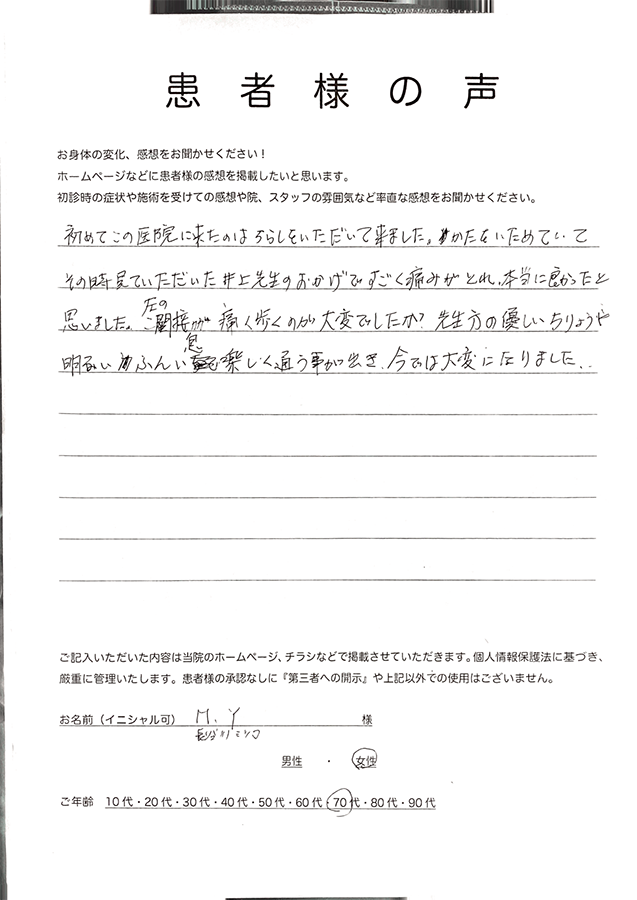 患者様の声
お身体の変化、感想をお聞かせください！
ホームページなどに患者様の感想を掲載したいと思います。
初診時の症状や施術を受けての感想や院、スタッフの雰囲気など率直な感想をお聞かせください。
初めてこの医院に来たのはちらしをいただいて来ました。かたをいためていて
その時見ていただいた井上先生のおかげですごく痛みがとれ、本当に良かったと
思いました。左の関接が痛く歩くのが大変でしたが? 先生方の優しいちりょうや
明るいふんい気で楽しく通う事が出き、今では大変になりました..
ご記入いただいた内容は当院のホームページ、チラシなどで掲載させていただきます。個人情報保護法に基づき、
厳重に管理いたします。患者様の承認なしに『第三者への開示』や上記以外での使用はございません。
お名前（イニシャル可） M. Y 様
男性 ・ 女性
ご年齢 10代・20代・30代・40代・50代・60代・70代・80代・90代